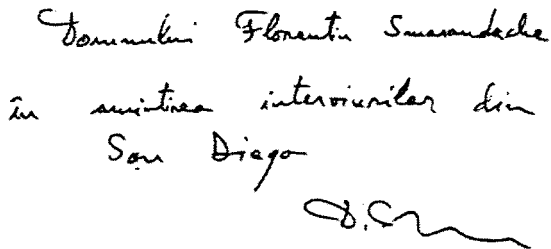 Domnului Florentin Smarandache
în amintirea interviurilor din
San Diego
D.